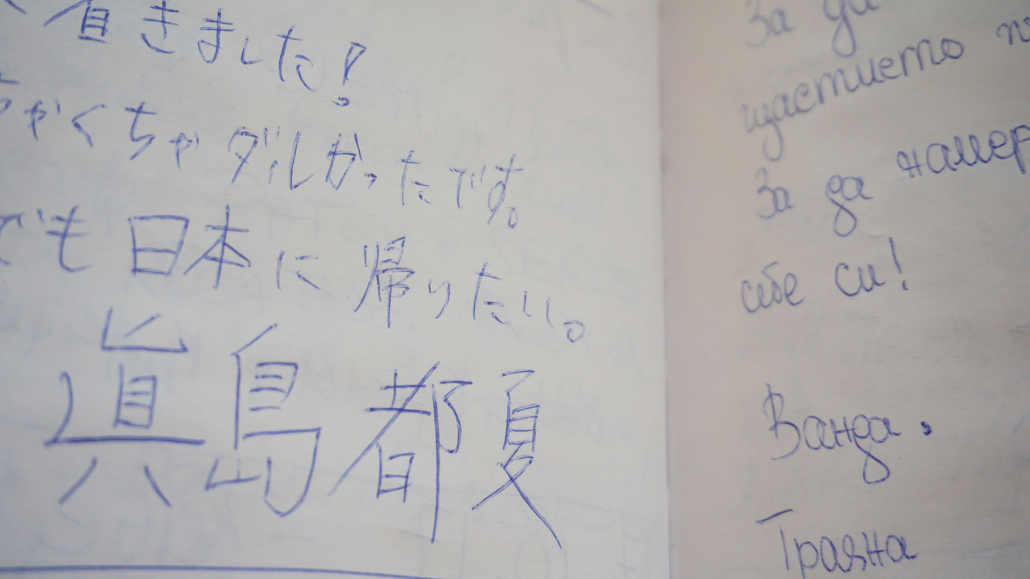 着きました！
ちゃくちゃダルかったです。
でも日本に帰りたい。
眞島都夏
За да
щастието
За да намер
себе си!
Ванда,
Траяна